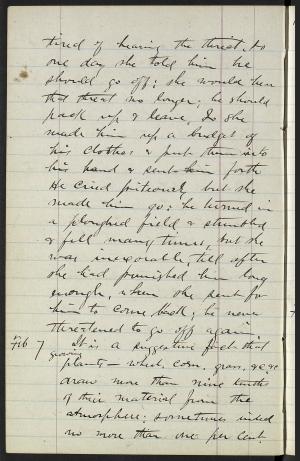 tired of hearing the threat. So
one day she told him he
should go off: she would hear
that threat no longer; he should
pack up & leave. So she
made him up a budget of
his clothes & put them into
his hand & sent him forth
He cried piteously but she
made him go: he turned in
a ploughed field & stumbled
& fell many times, but she
was inexorable, till after
she had punished him long
enough, when she sent for
him to come back; he never
threatened to go off again
726 7 It is a suggestive fact that
growing
plants — wheat, corn, grass, &c &c
draw more than nine tenths
of their material from the
atmosphere; sometimes indeed
no more than one per cent.